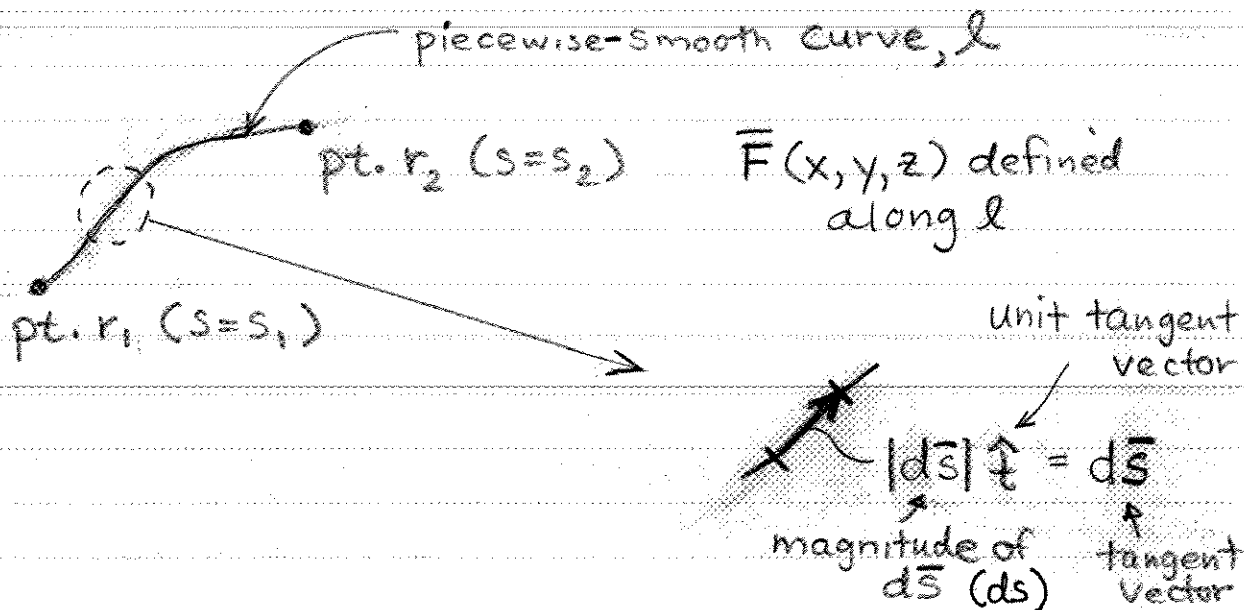 piecewise-smooth curve, ℓ
pt. r₂ (s=s₂)
F̅(x,y,z) defined
along ℓ
pt. r₁ (s=s₁)
unit tangent
vector
|ds̅| t̂ = ds̅
magnitude of
ds̅ (ds)
tangent
vector